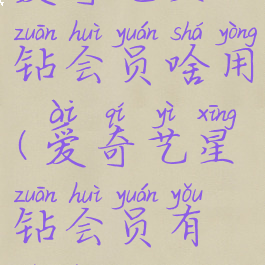 zuān huì yuán shá yòng
钻会员啥用
ài qí yì xīng
(爱奇艺星
zuān huì yuán yǒu
钻会员有